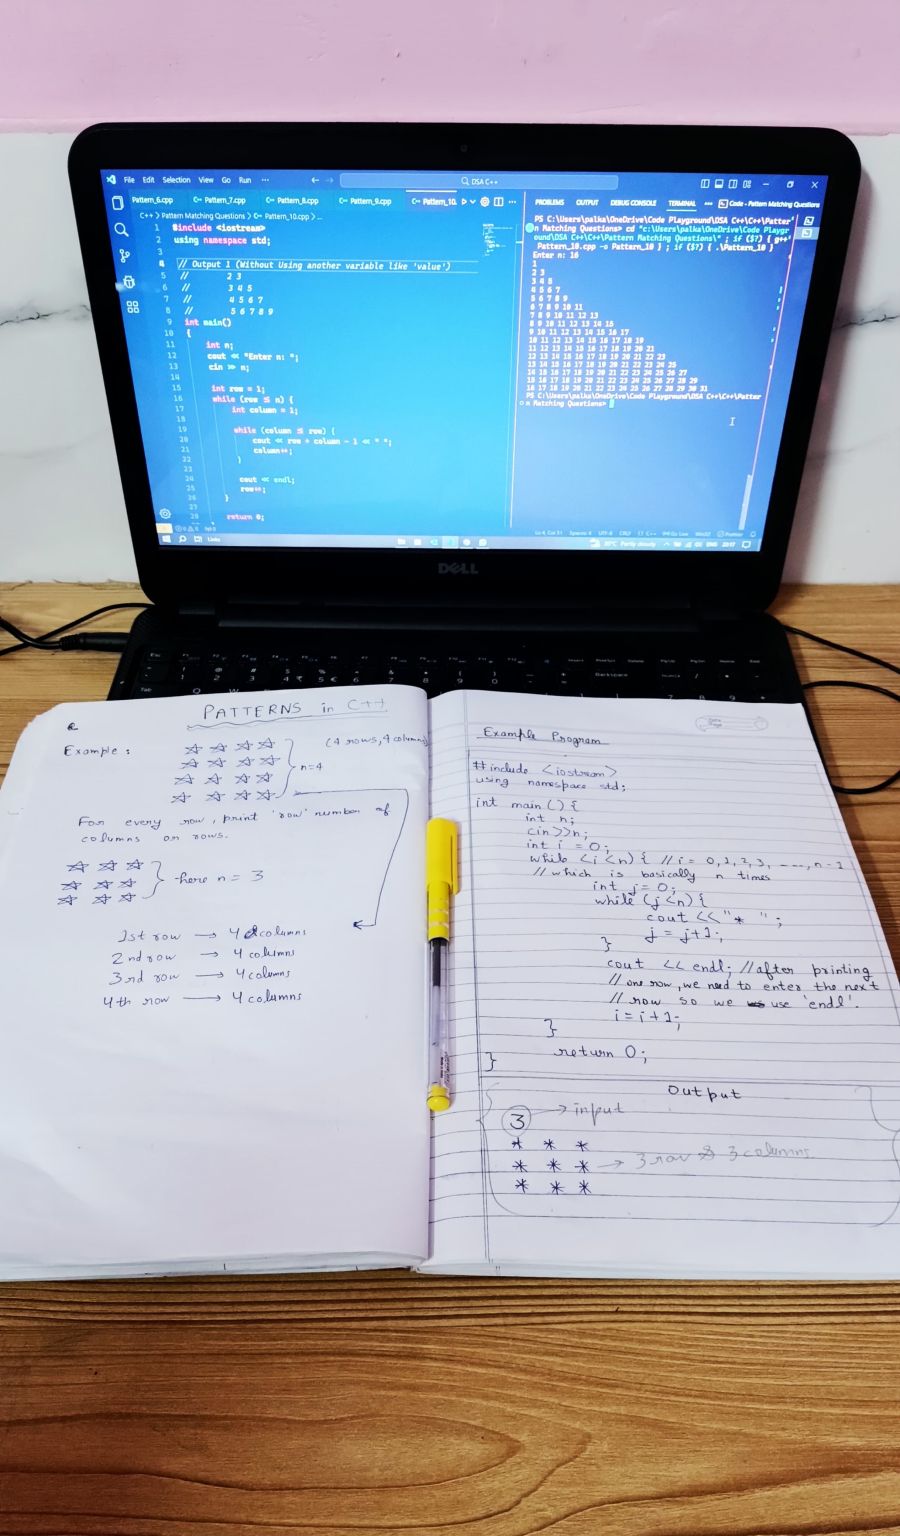 File Edit Selection View Go Run ...
DSA C++
Pattern_6.cpp Pattern_7.cpp Pattern_8.cpp Pattern_9.cpp Pattern_10.
C++ > Pattern Matching Questions > Pattern_10.cpp > ...
1 #include <iostream>
2 using namespace std;
3
4 // Output 1 (Without Using another variable like 'value')
5 // 2 3
6 // 3 4 5
7 // 4 5 6 7
8 // 5 6 7 8 9
9 int main()
10 {
11 int n;
12 cout << "Enter n: ";
13 cin >> n;
14
15 int row = 1;
16 while (row ≤ n) {
17 int column = 1;
18
19 while (column ≤ row) {
20 cout << row + column - 1 << " ";
21 column++;
22 }
23
24 cout << endl;
25 row++;
26 }
27
28 return 0;
PROBLEMS OUTPUT DEBUG CONSOLE TERMINAL ... Code - Pattern Matching Questions
PS C:\Users\palka\OneDrive\Code Playground\DSA C++\C++\Patter
n Matching Questions> cd "c:\Users\palka\OneDrive\Code Playgr
ound\DSA C++\C++\Pattern Matching Questions\" ; if ($?) { g++
Pattern_10.cpp -o Pattern_10 } ; if ($?) { .\Pattern_10 }
Enter n: 16
1
2 3
3 4 5
4 5 6 7
5 6 7 8 9
6 7 8 9 10 11
7 8 9 10 11 12 13
8 9 10 11 12 13 14 15
9 10 11 12 13 14 15 16 17
10 11 12 13 14 15 16 17 18 19
11 12 13 14 15 16 17 18 19 20 21
12 13 14 15 16 17 18 19 20 21 22 23
13 14 15 16 17 18 19 20 21 22 23 24 25
14 15 16 17 18 19 20 21 22 23 24 25 26 27
15 16 17 18 19 20 21 22 23 24 25 26 27 28 29
16 17 18 19 20 21 22 23 24 25 26 27 28 29 30 31
PS C:\Users\palka\OneDrive\Code Playground\DSA C++\C++\Patter
n Matching Questions>
Links
Partly cloudy
DELL
PATTERNS in C++
Example :
(4 rows, 4 columns)
n=4
For every row, print 'row' number of
columns or rows.
here n = 3
1st row → 4 columns
2nd row → 4 columns
3rd row → 4 columns
4th row → 4 columns
Date
Page
Example Program
#include <iostream>
using namespace std;
int main () {
int n;
cin>>n;
int i = 0;
while (i<n) { // i = 0, 1, 2, 3, ----, n-1
// which is basically n times
int j = 0;
while (j<n) {
cout <<"* ";
j = j+1;
}
cout << endl; // after printing
// one row, we need to enter the next
// row so we use 'endl'.
i = i+1;
}
return 0;
}
Output
3 → input
* * *
* * * → 3 row & 3 columns
* * *